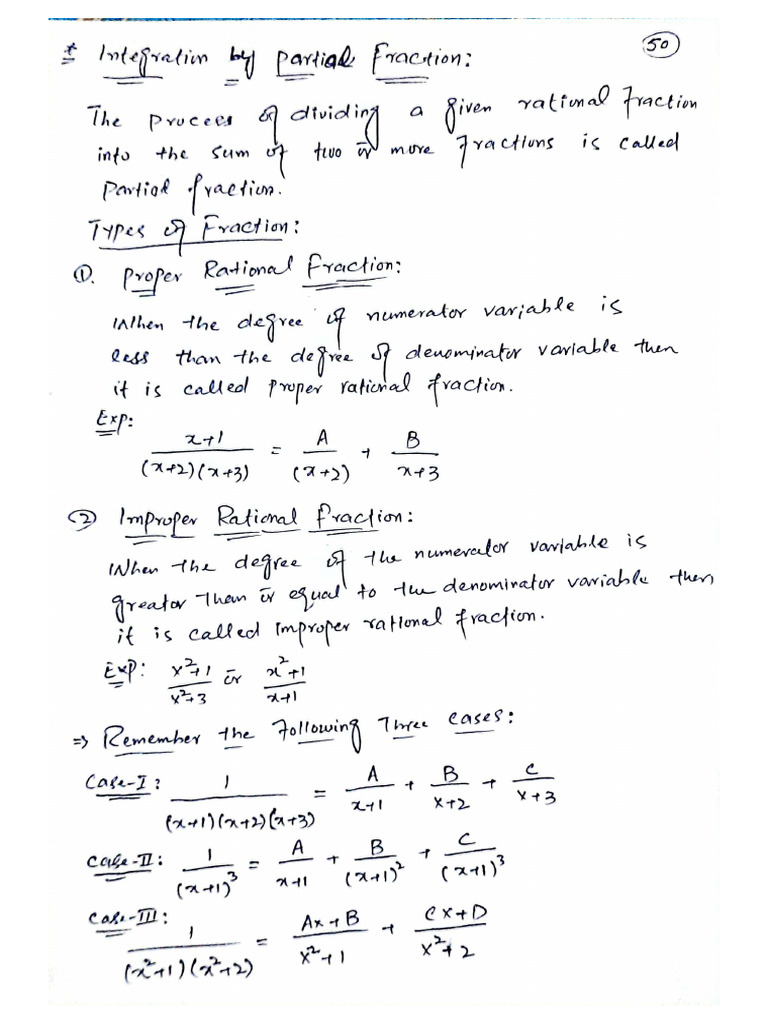 50
* Integration by Partial Fraction:
The process of dividing a given rational fraction
into the sum of two or more fractions is called
Partial fraction.
Types of Fraction:
①. Proper Rational Fraction:
When the degree of numerator variable is
less than the degree of denominator variable then
it is called proper rational fraction.
Exp:
x+1/(x+2)(x+3) = A/(x+2) + B/x+3
② Improper Rational fraction:
When the degree of the numerator variable is
greator than or equal to the denominator variable then
it is called improper rational fraction.
Exp: x²+1/x²+3 or x²+1/x+1
⇒ Remember the Following Three cases:
Case-I: 1/(x+1)(x+2)(x+3) = A/x+1 + B/x+2 + C/x+3
Case-II: 1/(x+1)³ = A/x+1 + B/(x+1)² + C/(x+1)³
Case-III: 1/(x²+1)(x²+2) = Ax+B/x²+1 + Cx+D/x²+2